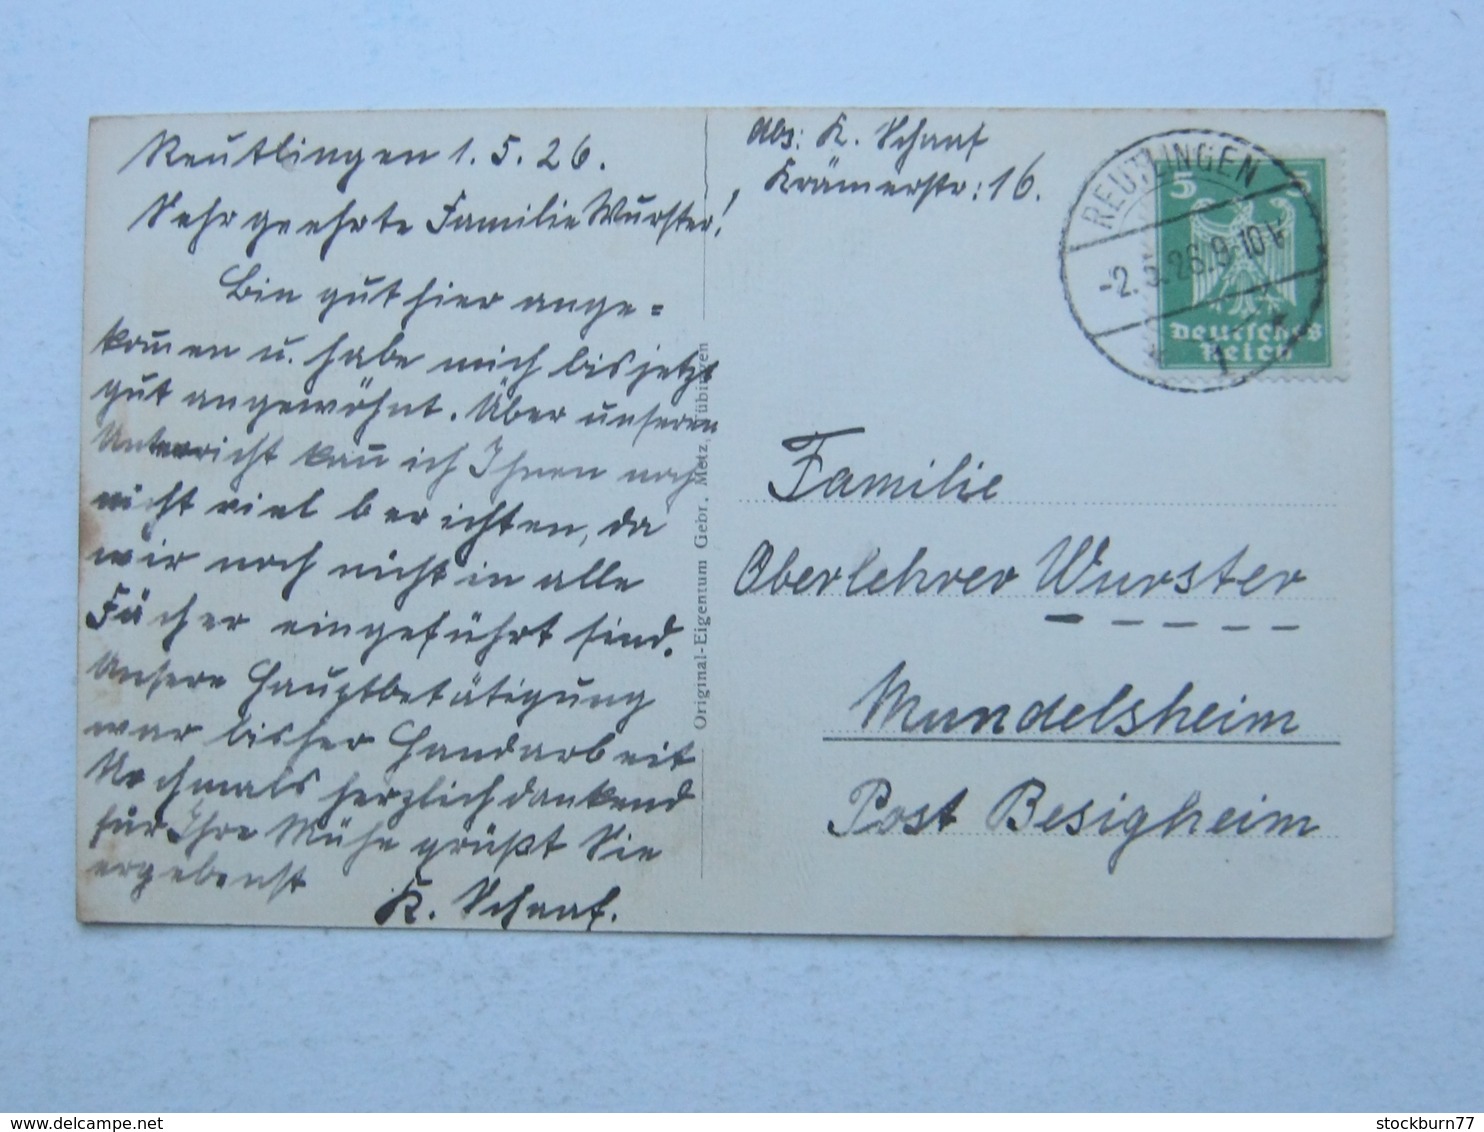 Reutlingen 1.5.26.
Sehr geehrte Familie Wurster!
Bin gut hier ange=
kom̄en u. habe mich bis jetzt
gut angewöhnt. Über unseren
Unterricht kan̄ ich Ihnen noch
nicht viel berichten, da
wir noch nicht in alle
Fächer eingeführt sind.
Unsere Hauptbetätigung
war bisher Handarbeit
Nochmals herzlich dankend
für Ihre Mühe grüßt Sie
ergebenst
K. Schaaf.
Original-Eigentum Gebr. Metz, Tübingen
Abs: K. Schaaf
Krämerstr: 16.
REUTLINGEN
-2.5.26.9-10V
1
5 5
Deutsches
Reich
Familie
Oberlehrer Wurster
Mundelsheim
Post Besigheim
stockburn77